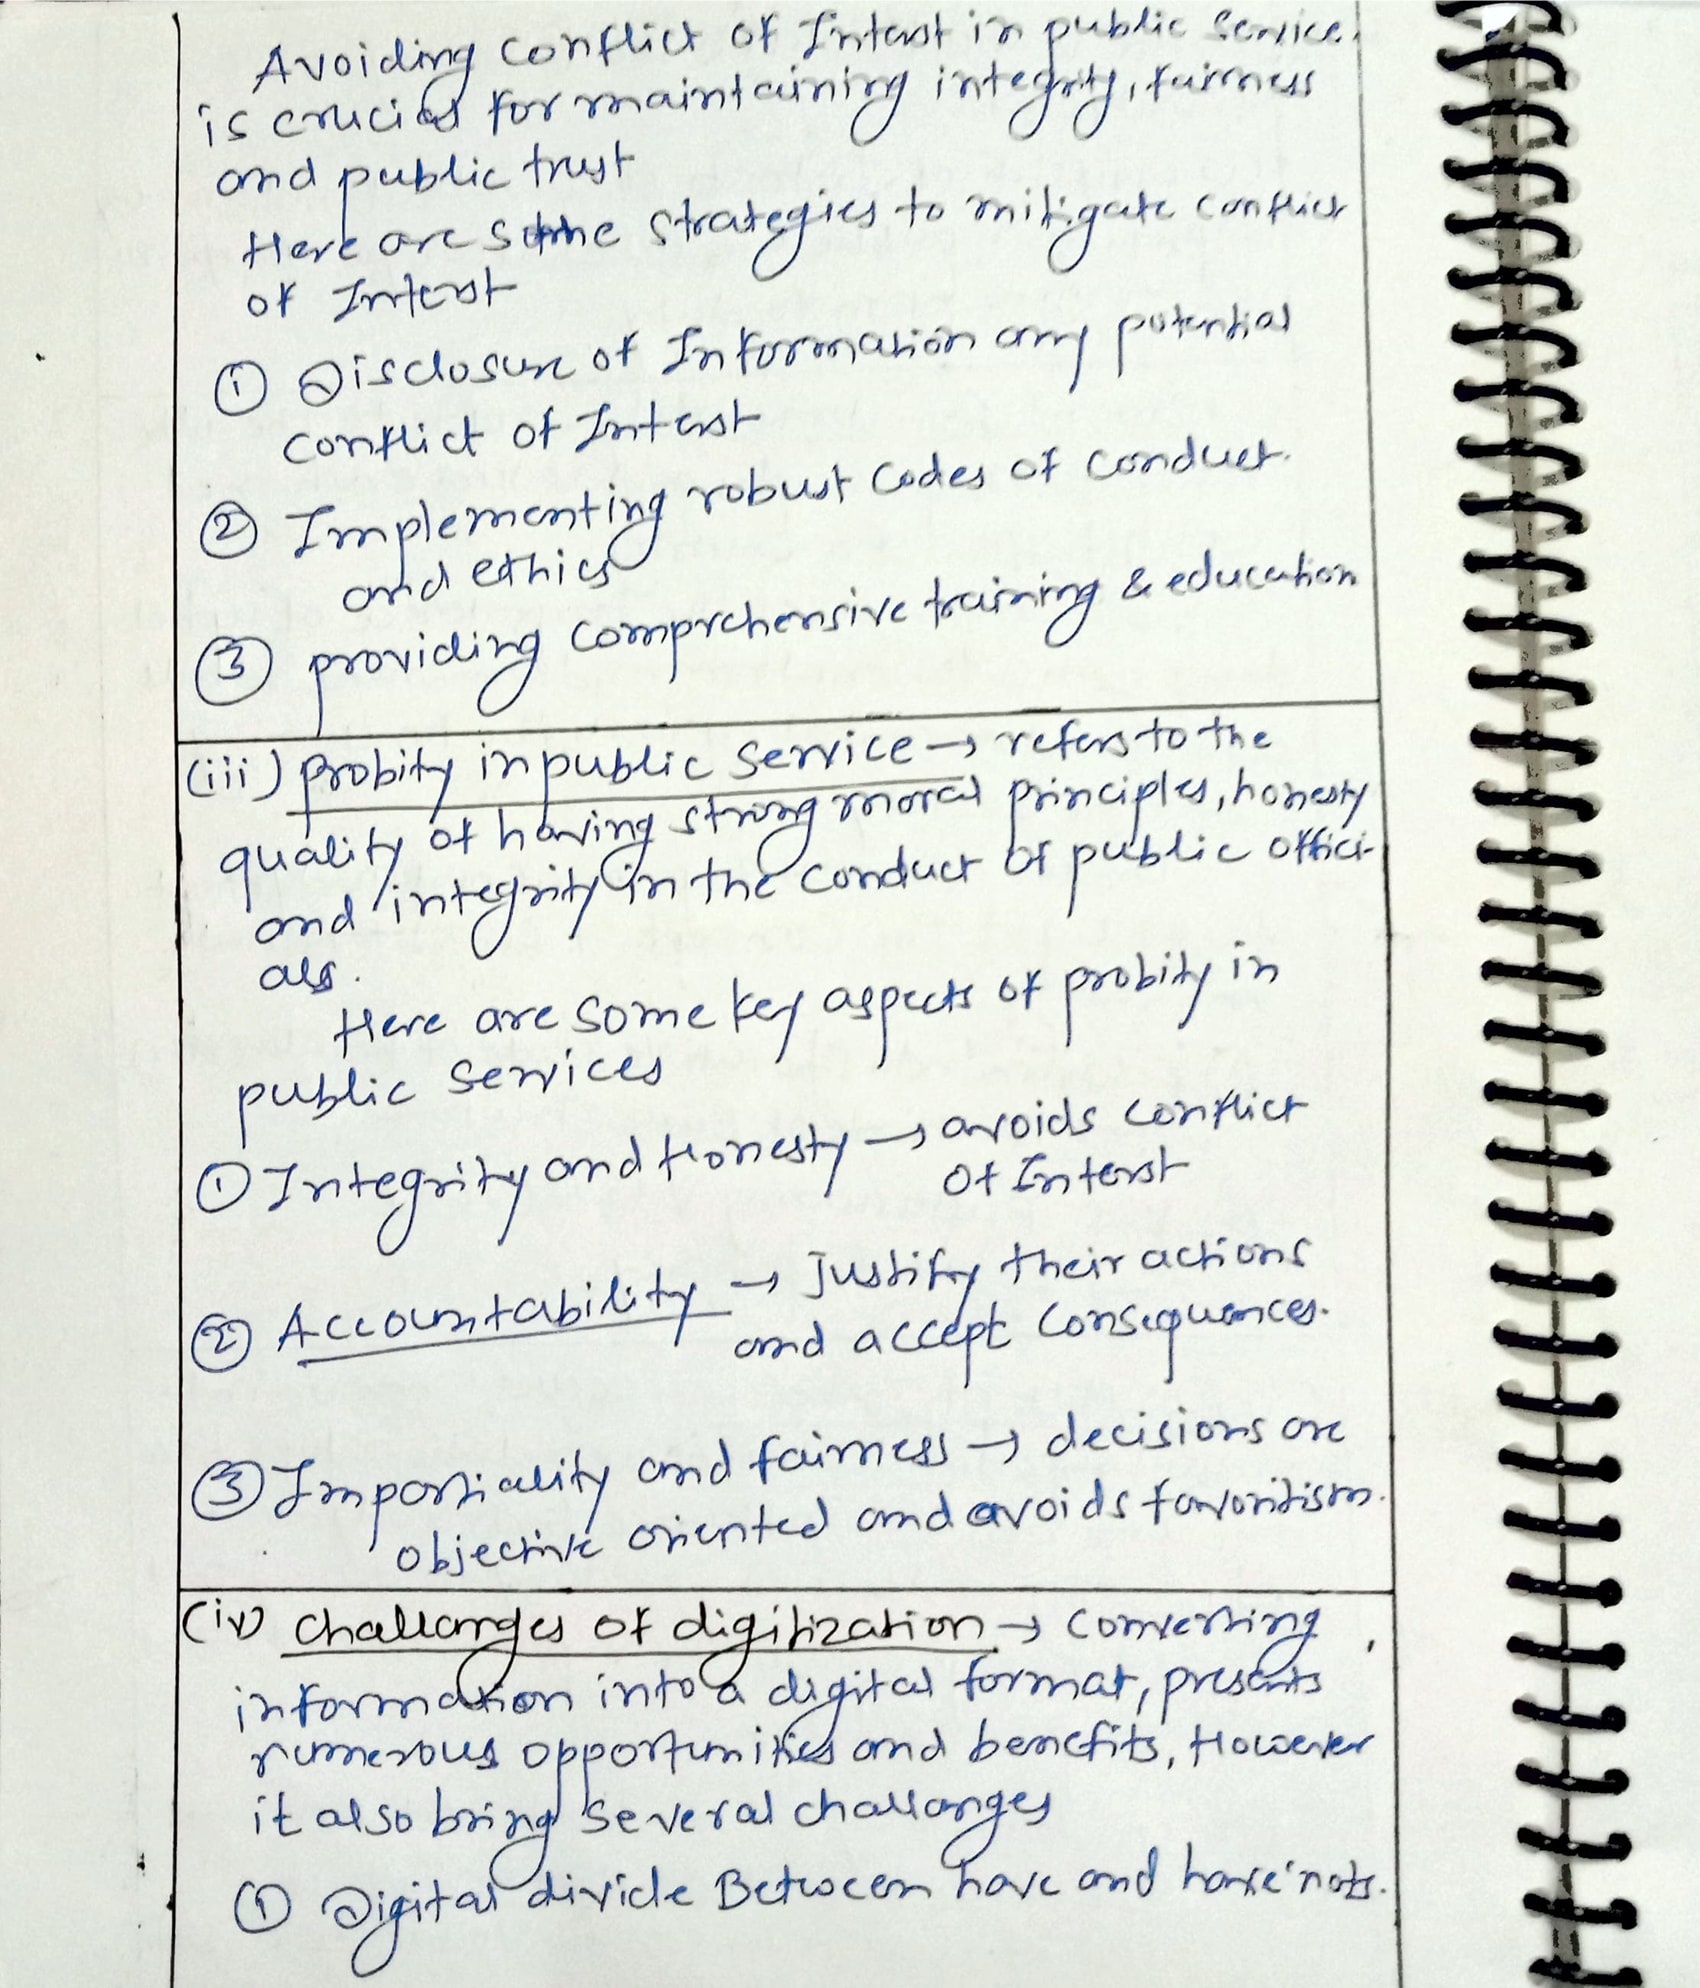 Avoiding conflict of Interst in public service.
is crucial for maintaining integrity, fairness
and public trust
Here are some strategies to mitigate conflict
of Interst
① Disclosure of Information any potential
conflict of Interst
② Implementing robust codes of conduct.
and ethics
③ providing comprehensive training & education
(iii) probity in public service → refers to the
quality of having strong moral principles, honesty
and integrity in the conduct of public offici-
als.
Here are some key aspects of probity in
public services
① Integrity and Honesty → avoids conflict
of Interst
② Accountability → Justify their actions
and accept consequences.
③ Impartiality and fairness → decisions are
objective oriented and avoids favoritism.
(iv) challanges of digitization → converting
information into a digital format, presents
numerous opportunities and benefits, However
it also bring several challanges
① Digital divide Between have and have'nots.